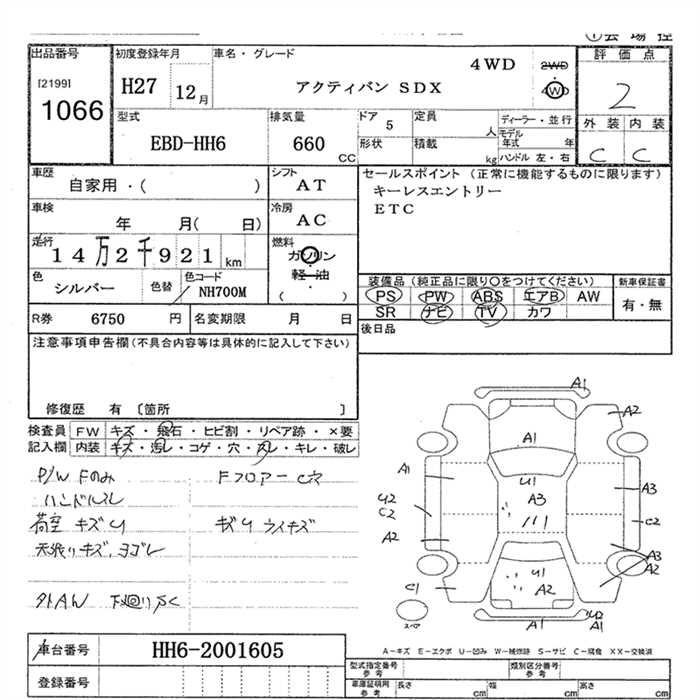 ①会場控
出品番号 初度登録年月 車名・グレード 評価点
[2199] 1066
H27 12月 アクティバン SDX 4WD 2WD 4WD 2
型式 EBD-HH6 排気量 660 CC ドア 5 定員 人 ディーラー・並行
形状 積載 kg モデル年式 年 ハンドル 左・右
外装 内装
C C
車歴 自家用・( ) シフト AT
車検 年 月( 日) 冷房 AC
走行 14万2千921 km 燃料 ガソリン 軽・油 ( )
色 シルバー 色替 色コード NH700M
セールスポイント (正常に機能するものに限ります)
キーレスエントリー
ETC
装備品 (純正品に限り〇をつけてください) 新車保証書
PS PW ABS エアB AW 有・無
SR ナビ TV カワ
R券 6750 円 名変期限 月 日
後日品
注意事項申告欄(不具合内容等は具体的に記入して下さい)
修復歴 有 〔箇所 〕
検査員記入欄 FW キズ・飛石・ヒビ割・リペア跡・×要
内装 キズ・汚レ・コゲ・穴・スレ・キレ・破レ
P/W Fのみ Fフロアー
ハンドルスレ
荷室 キズU キズU
天張りキズ、ヨゴレ
外AW 下廻り
A1
A2
A1
A1
U1
A3
A3
U2
C2
C2
A2
A3
A2
U1
A2
C1
スペア
U2
A1
A1
A-キズ E-エクボ U-凹み W-補修跡 S-サビ C-腐食 XX-交換済
車台番号 HH6-2001605
登録番号
型式指定番号 参考 類別区分番号 参考
車庫証明用 参考 長さ cm 幅 cm 高さ cm